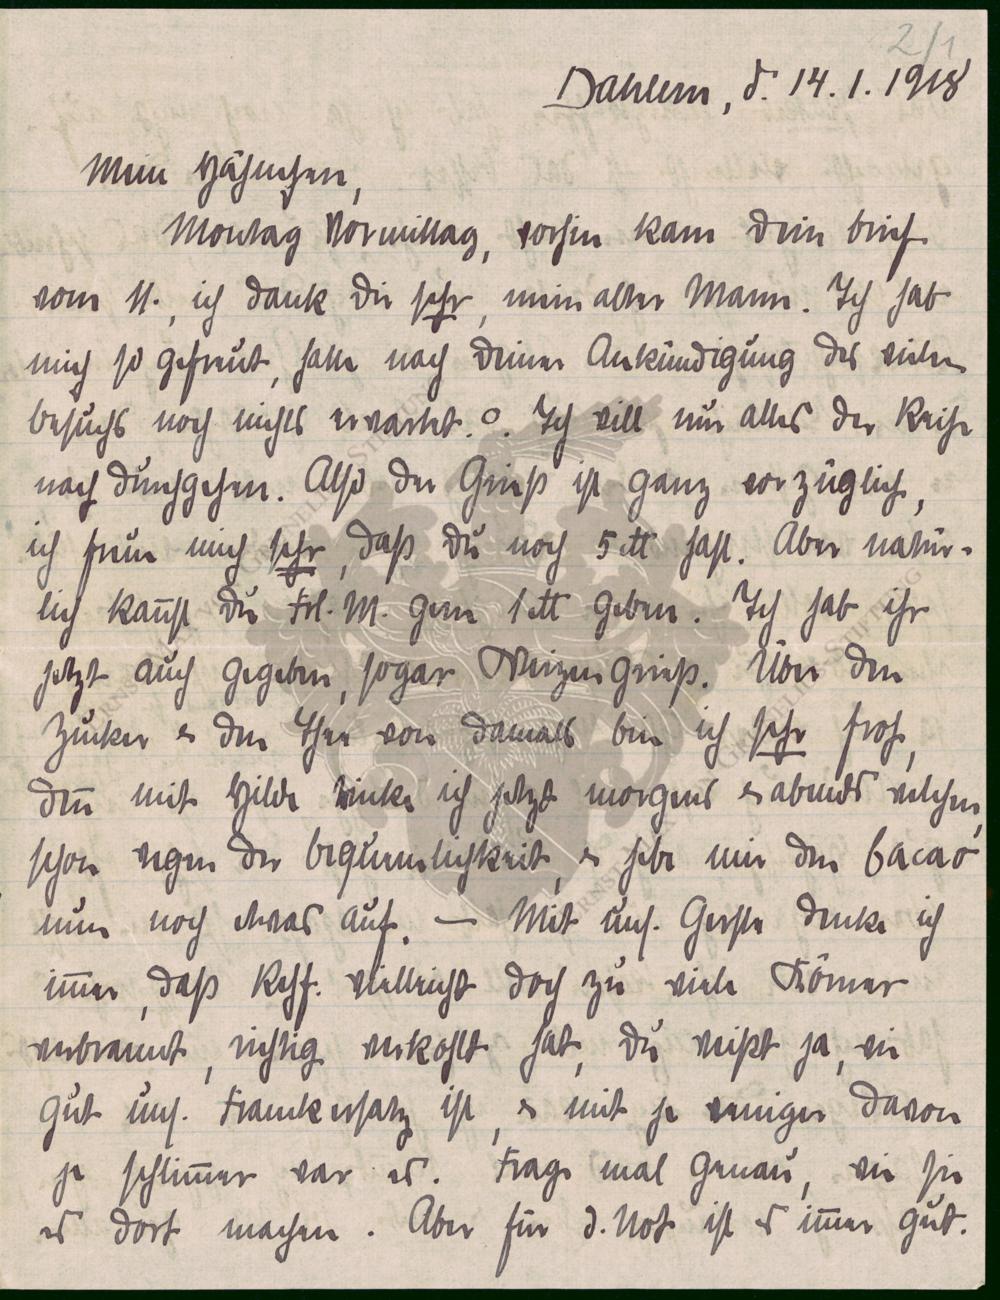 2/1
Dahlem, d. 14.1.1918
Mein Hähnchen,
Montag Vormittag, vorhin kam Dein brief
vom 11., ich dank Dir sehr, mein alter Mann. Ich hab
mich so gefreut, hatte nach Deiner Ankündigung des vielen
besuchs noch nichts erwartet. Ich will nur alles der Reihe
nach durchgehen. Also der Grieß ist ganz vorzüglich,
ich freue mich sehr, daß Du noch 5 ℔ hast. Aber natür-
lich kan̅st Du Frl. M. gern 1 ℔ geben. Ich hab ihr
jetzt auch gegeben, sogar Weizengrieß. Über den
Zucker & den Thee von damals bin ich sehr froh,
den̅ mit Hilde trinke ich jetzt morgens & abends welchen,
schon wegen der bequemlichkeit, & hebe mir den Cacao
nun noch etwas auf. — Mit uns. Gerste denke ich
im̅er, daß Kchf. vielleicht doch zu viele Körner
verbrannt, richtig verkohlt hat, Du weißt ja, wie
gut uns. Franckersatz ist, & mit je weniger davon
je schlim̅er war es. Frage mal genau, wie sie
es dort machen. Aber für d. Not ist es im̅er gut.
ERNST VON SIEMENS